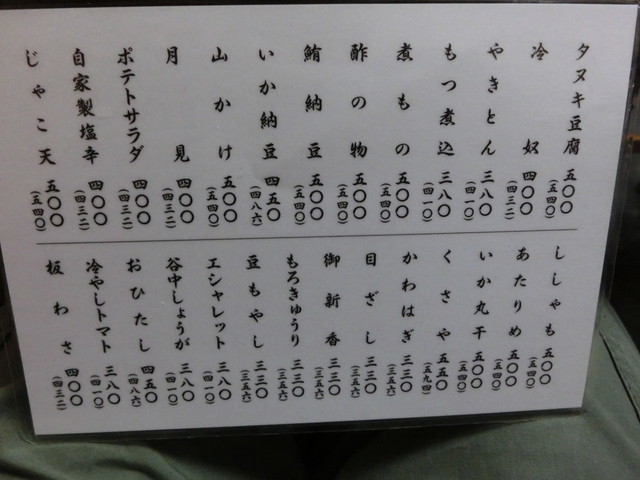 タヌキ豆腐 五〇〇（五四〇）
冷奴 四〇〇（四三二）
やきとん 三八〇（四一〇）
もつ煮込 三八〇（四一〇）
煮もの 五〇〇（五四〇）
酢の物 五〇〇（五四〇）
鮪納豆 五〇〇（五四〇）
いか納豆 四五〇（四八六）
山かけ 五〇〇（五四〇）
月見 四〇〇（四三二）
ポテトサラダ 四〇〇（四三二）
自家製塩辛 四〇〇（四三二）
じゃこ天 五〇〇（五四〇）
ししゃも 五〇〇（五四〇）
あたりめ 五〇〇（五四〇）
いか丸干 五〇〇（五四〇）
くさや 五五〇（五九四）
かわはぎ 三三〇（三五六）
目ざし 三三〇（三五六）
御新香 三三〇（三五六）
もろきゅうり 三三〇（三五六）
豆もやし 三三〇（三五六）
エシャレット 三八〇（四一〇）
谷中しょうが 三八〇（四一〇）
おひたし 四五〇（四八六）
冷やしトマト 三八〇（四一〇）
板わさ 四〇〇（四三二）